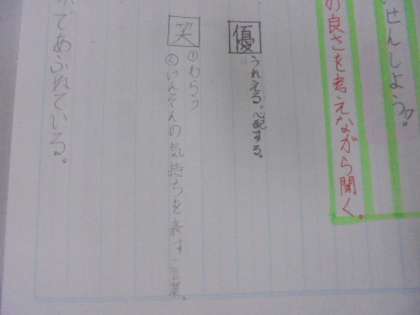 せんしよう。
の良さを考えながら聞く。
優
うれえる。心配する。
笑
①わらう
②けんそんの気持ちを表す言葉。
であふれている。